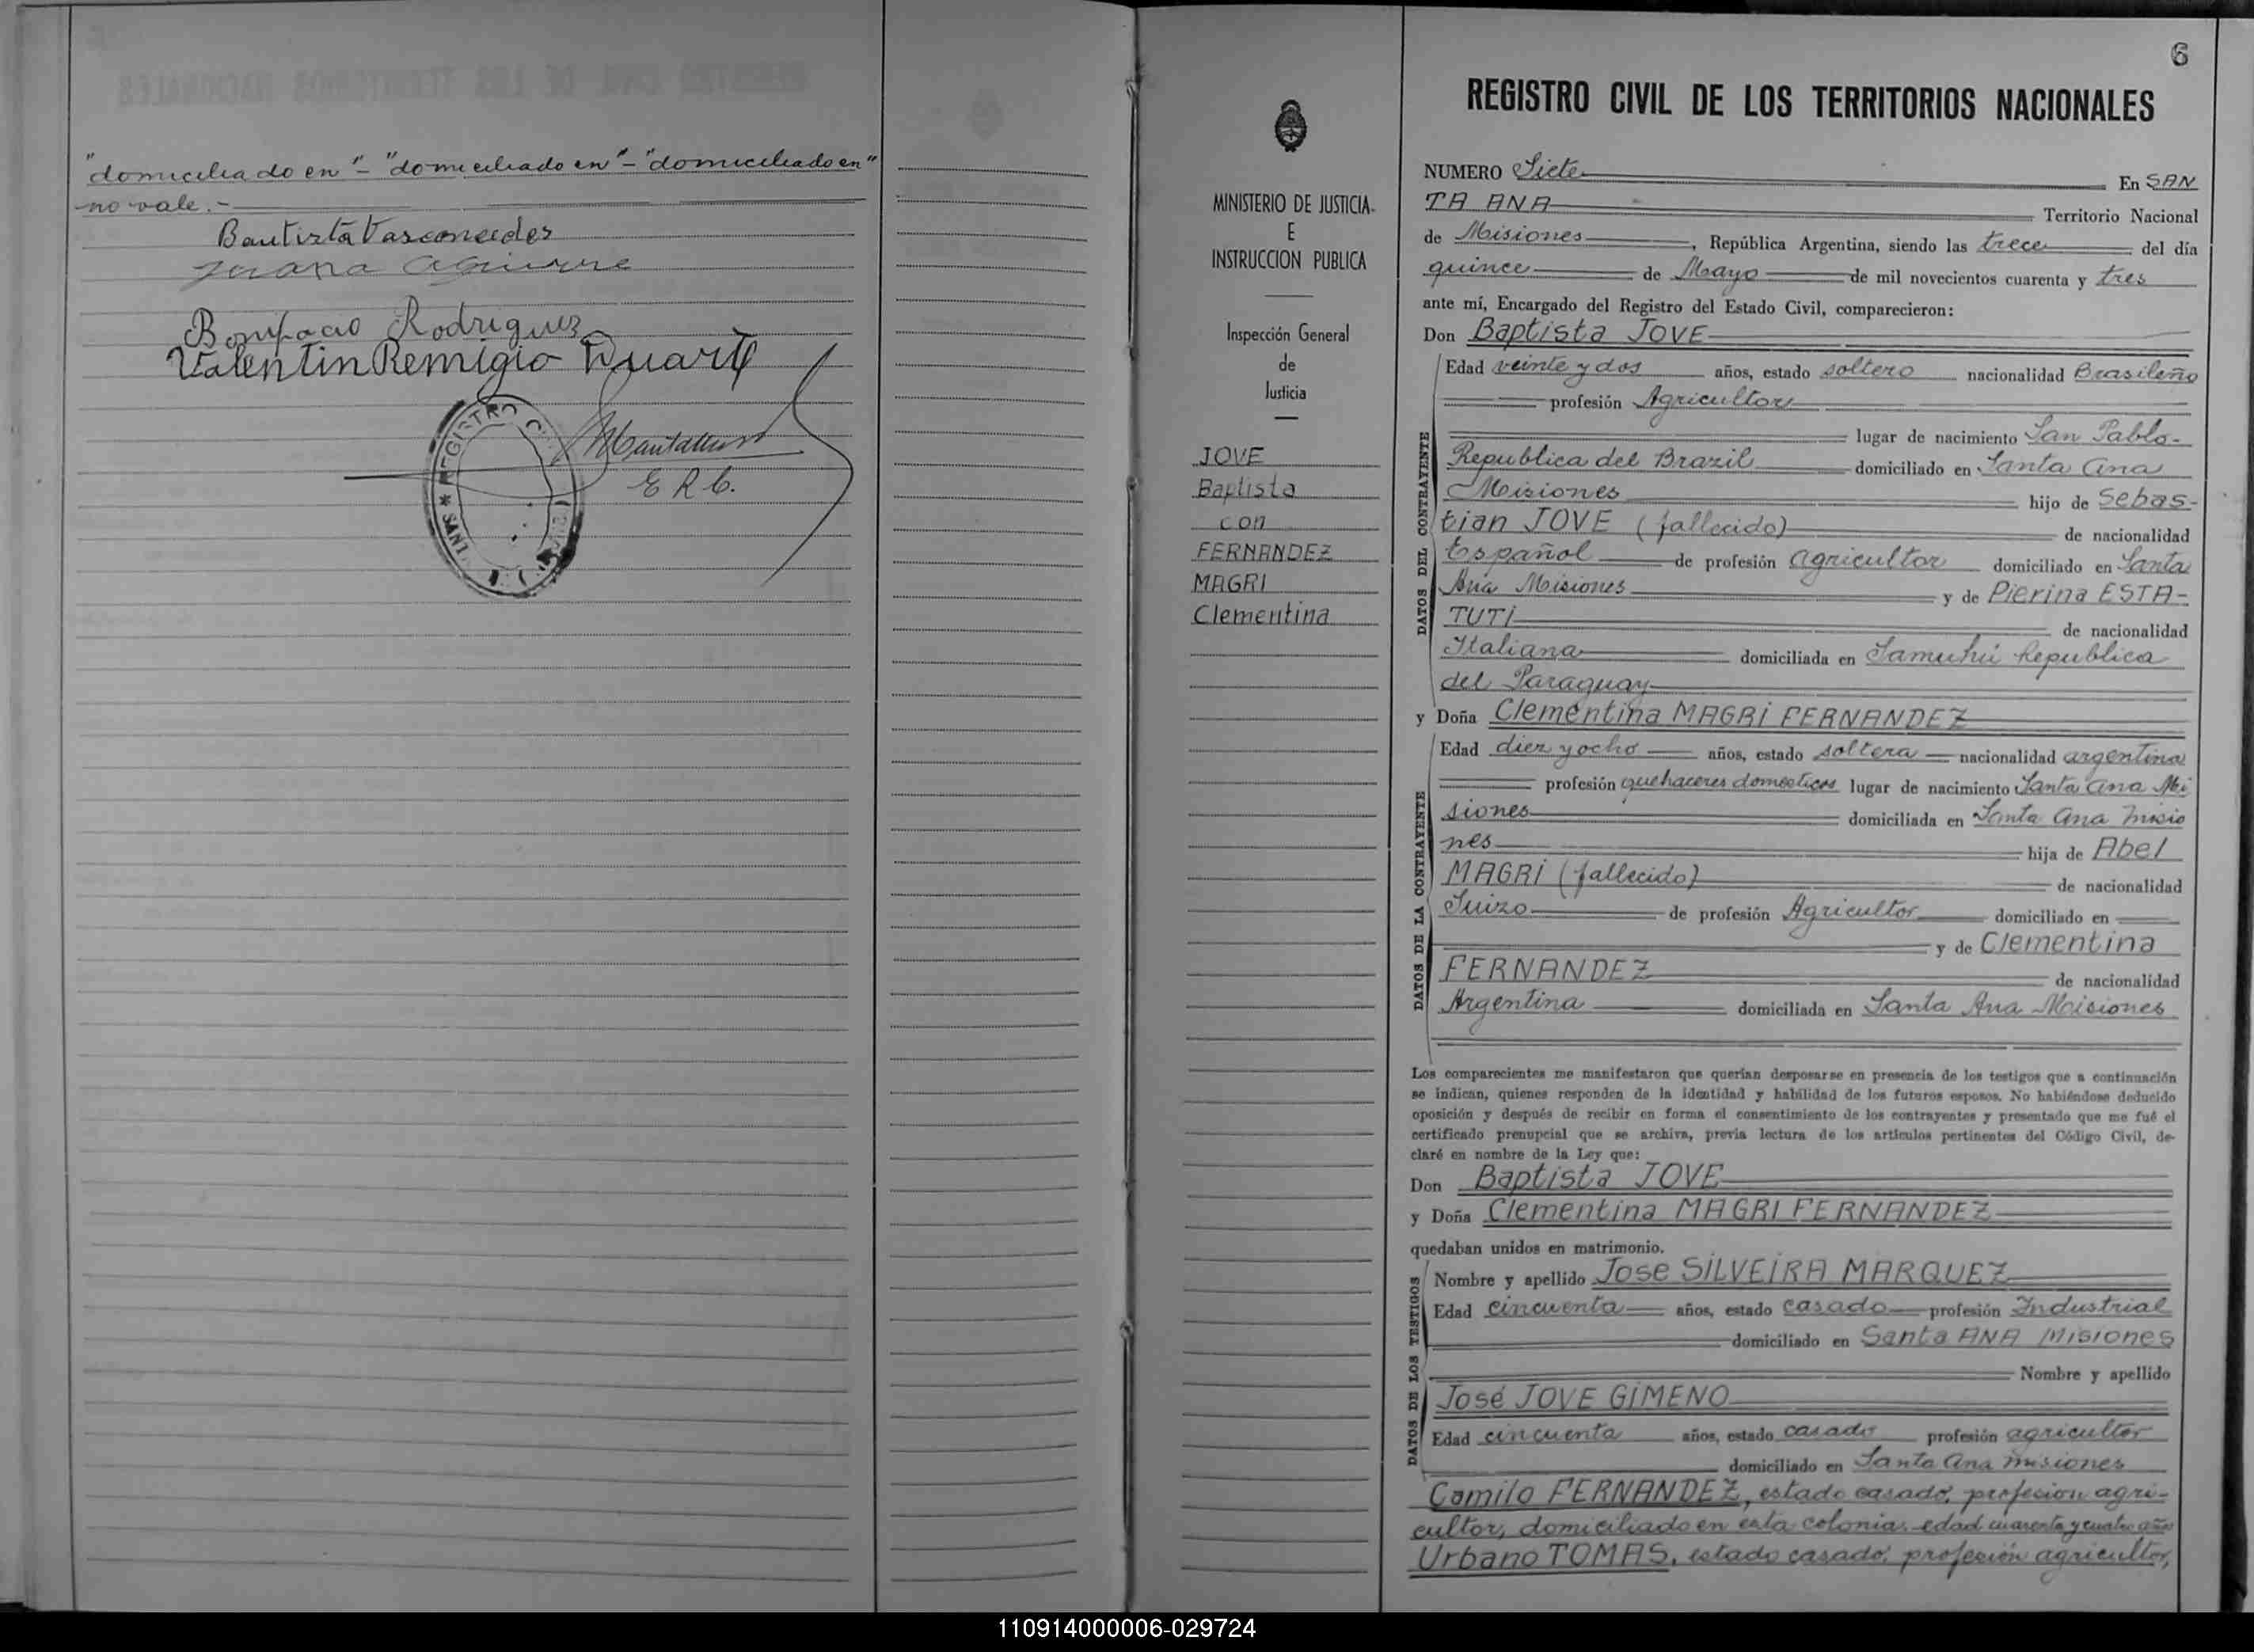 "domiciliado en" – "domiciliado en" – "domiciliado en"
no vale.-
Bautista Vasconcedes
Juana Aguirre
Bonifacio Rodriguez
Valentin Remigio Duarte
E R C.
REGISTRO
SANTA
MINISTERIO DE JUSTICIA
E
INSTRUCCION PUBLICA
Inspección General
de
Justicia
JOVE
Baptista
con
FERNANDEZ
MAGRI
Clementina
6
REGISTRO CIVIL DE LOS TERRITORIOS NACIONALES
NUMERO Siete En SAN
TA ANA Territorio Nacional
de Misiones, República Argentina, siendo las trece del día
quince de Mayo de mil novecientos cuarenta y tres
ante mí, Encargado del Registro del Estado Civil, comparecieron:
Don Baptista JOVE
DATOS DEL CONTRAYENTE
Edad veinte y dos años, estado soltero nacionalidad Brasileño
profesión Agricultor
lugar de nacimiento San Pablo-
Republica del Brazil domiciliado en Santa Ana
Misiones hijo de Sebas-
tian JOVE (fallecido) de nacionalidad
Español de profesión agricultor domiciliado en Santa
Ana Misiones y de Pierina ESTA-
TUTI de nacionalidad
Italiana domiciliada en Tamuhú Republica
del Paraguay
y Doña Clementina MAGRI FERNANDEZ
DATOS DE LA CONTRAYENTE
Edad diez y ocho años, estado soltera nacionalidad argentina
profesión quehaceres domesticos lugar de nacimiento Santa Ana Mi
siones domiciliada en Santa Ana Misio
nes hija de Abel
MAGRI (fallecido) de nacionalidad
Suizo de profesión Agricultor domiciliado en
y de Clementina
FERNANDEZ de nacionalidad
Argentina domiciliada en Santa Ana Misiones
Los comparecientes me manifestaron que querían desposarse en presencia de los testigos que a continuación
se indican, quienes responden de la identidad y habilidad de los futuros esposos. No habiéndose deducido
oposición y después de recibir en forma el consentimiento de los contrayentes y presentado que me fué el
certificado prenupcial que se archiva, previa lectura de los artículos pertinentes del Código Civil, de-
claré en nombre de la Ley que:
Don Baptista JOVE
y Doña Clementina MAGRI FERNANDEZ
quedaban unidos en matrimonio.
DATOS DE LOS TESTIGOS
Nombre y apellido Jose SILVEIRA MARQUEZ
Edad cincuenta años, estado casado profesión Industrial
domiciliado en Santa ANA Misiones
Nombre y apellido
José JOVE GIMENO
Edad cincuenta años, estado casado profesión agricultor
domiciliado en Santa Ana misiones
Camilo FERNANDEZ, estado casado, profesion agri-
cultor, domiciliado en esta colonia, edad cuarenta y cuatro años
Urbano TOMAS, estado casado, profesión agricultor,
110914000006-029724